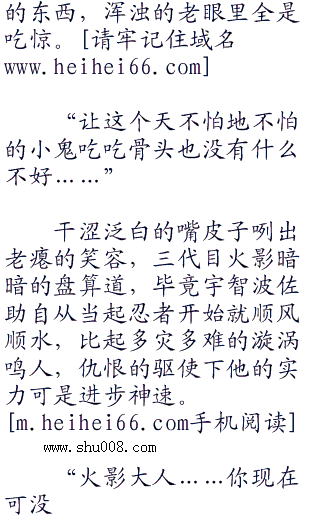 的东西，浑浊的老眼里全是
吃惊。[请牢记住域名
www.heihei66.com]
“让这个天不怕地不怕
的小鬼吃吃骨头也没有什么
不好……”
干涩泛白的嘴皮子咧出
老瘪的笑容，三代目火影暗
暗的盘算道，毕竟宇智波佐
助自从当起忍者开始就顺风
顺水，比起多灾多难的漩涡
鸣人，仇恨的驱使下他的实
力可是进步神速。
[m.heihei66.com手机阅读]
www.shu008.com
“火影大人……你现在
可没